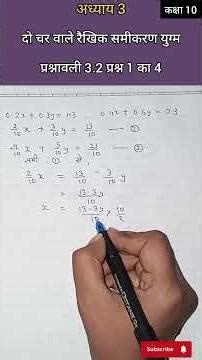 अध्याय 3
कक्षा 10
दो चर वाले रैखिक समीकरण युग्म
प्रश्नावली 3.2 प्रश्न 1 का 4
0.2x + 0.3y = 1.3 , 0.4x + 0.5y = 2.3
2/10 x + 3/10 y = 13/10 — ①
4/10 x + 5/10 y = 23/10 — ②
समी ① से
2/10 x = 13/10 - 3/10 y
= 13-3y/10
x = 13-3y/10 × 10/2
Subscribe